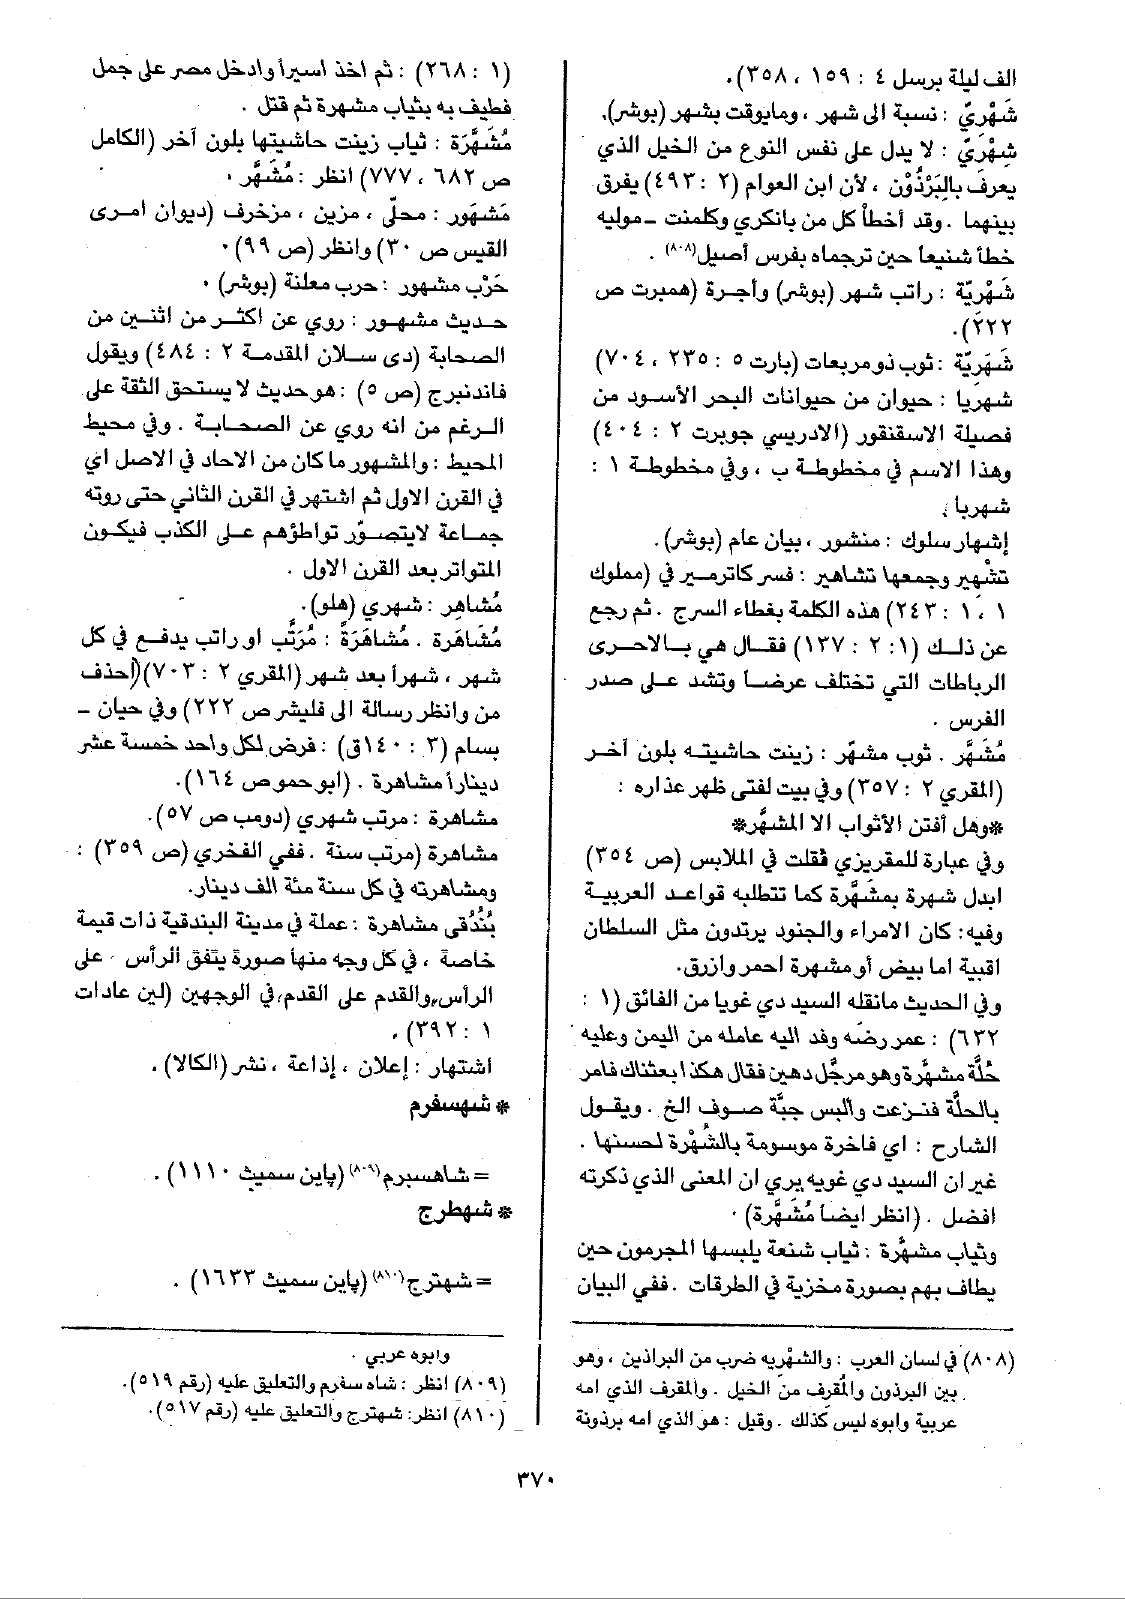 الف ليلة برسل ٤ : ١٥٩ ، ٣٥٨).
شَهْرِيّ : نسبة الى شهر ، ومايوقت بشهر (بوشر).
شِهْرِيّ : لا يدل على نفس النوع من الخيل الذي
يعرف بالبَرْذُوْن ، لأن ابن العوام (٢ : ٤٩٣) يفرق
بينهما . وقد أخطأ كل من بانكري وكلمنت - موليه
خطأ شنيعا حين ترجماه بفرس أصيل(٨٠٨) .
شَهْرِيَّة : راتب شهر (بوشر) وأجرة (همبرت ص
٢٢٢).
شَهَرِيَّة : ثوب ذو مربعات (بارت ٥ : ٢٣٥ ، ٧٠٤)
شهريا : حيوان من حيوانات البحر الأسود من
فصيلة الاسقنقور (الادريسي جوبرت ٢ : ٤٠٤)
وهذا الاسم في مخطوطة ب ، وفي مخطوطة ١ :
شهربا .
إشهار سلوك : منشور ، بيان عام (بوشر).
تشْهِير وجمعها تشاهير : فسر كاترمير في (مملوك
١ ، ١ : ٢٤٣) هذه الكلمة بغطاء السرج . ثم رجع
عن ذلك (١ : ٢ : ١٣٧) فقال هي بالاحرى
الرباطات التي تختلف عرضا وتشد على صدر
الفرس .
مُشَهَّر . ثوب مشهّر : زينت حاشيته بلون أخر
(المقري ٢ : ٣٥٧) وفي بيت لفتى ظهر عذاره :
*وهل أفتن الأثواب الا المشهّر*
وفي عبارة للمقريزي نقلت في الملابس (ص ٣٥٤)
ابدل شهرة بمشهّرة كما تتطلبه قواعد العربية
وفيه: كان الامراء والجنود يرتدون مثل السلطان
اقبية اما بيض أو مشهرة احمر وازرق.
وفي الحديث مانقله السيد دي غويا من الفائق (١ :
٦٣٢) : عمر رضه وفد اليه عامله من اليمن وعليه
حُلَّة مشهَّرة وهو مرجَّل دهين فقال هكذا بعثناك فامر
بالحلَّة فنزعت وألبس جبَّة صوف الخ . ويقول
الشارح : اي فاخرة موسومة بالشُهْرة لحسنها .
غير ان السيد دي غويه يري ان المعنى الذي ذكرته
افضل . (انظر ايضا مُشَهَّرة) .
وثياب مشهَّرة : ثياب شنعة يلبسها المجرمون حين
يطاف بهم بصورة مخزية في الطرقات . ففي البيان
(١ : ٢٦٨) : ثم اخذ اسيرأ وادخل مصر على جمل
فطيف به بثياب مشهرة ثم قتل .
مُشَهَّرَة : ثياب زينت حاشيتها بلون آخر (الكامل
ص ٦٨٢ ، ٧٧٧) انظر : مُشَهَّر .
مَشهَور : محلّى ، مزين ، مزخرف (ديوان امرى
القيس ص ٣٠) وانظر (ص ٩٩) .
حَرْب مشهور : حرب معلنة (بوشر) .
حديث مشهور : روي عن اكثر من اثنين من
الصحابة (دى سلان المقدمة ٢ : ٤٨٤) ويقول
فاندنبرج (ص ٥) : هو حديث لا يستحق الثقة على
الرغم من انه روي عن الصحابة . وفي محيط
المحيط : والمشهور ما كان من الاحاد في الاصل اي
في القرن الاول ثم اشتهر في القرن الثاني حتى روته
جماعة لايتصوّر تواطؤهم على الكذب فيكون
المتواتر بعد القرن الاول .
مُشاهِر : شهري (هلو).
مُشَاهَرة . مُشاهَرَةً : مُرَتَّب او راتب يدفع في كل
شهر ، شهرأ بعد شهر (المقري ٢ : ٧٠٣)(أحذف
من وانظر رسالة الى فليشر ص ٢٢٢) وفي حيان -
بسام (٣ : ١٤٠ق) : فرض لكل واحد خمسة عشر
دينارأ مشاهرة . (ابو حمو ص ١٦٤).
مشاهرة : مرتب شهري (دومب ص ٥٧).
مشاهرة (مرتب سنة . ففي الفخري (ص ٣٥٩) :
ومشاهرته في كل سنة مئة الف دينار.
بُنْدُقى مشاهرة : عملة في مدينة البندقية ذات قيمة
خاصة ، في كل وجه منها صورة يتفق الرأس على
الرأس والقدم على القدم في الوجهين (لين عادات
١ : ٣٩٢) .
اشتهار : إعلان ، إذاعة ، نشر (الكالا) .
* شهسفرم
= شاهسبرم(٨٠٩) (پاين سميث ١١١٠) .
* شهطرج
= شهترج(٨١٠) (پاين سميث ١٦٣٣) .
(٨٠٨) في لسان العرب : والشهْريه ضرب من البراذين ، وهو
بين البرذون والمُقرِف من الخيل . والمقرف الذي امه
عربية وابوه ليس كذلك . وقيل : هو الذي امه برذونة
وابوه عربي .
(٨٠٩) انظر : شاه سفرم والتعليق عليه (رقم ٥١٩).
(٨١٠) انظر: شهترج والتعليق عليه (رقم ٥١٧).
٣٧٠